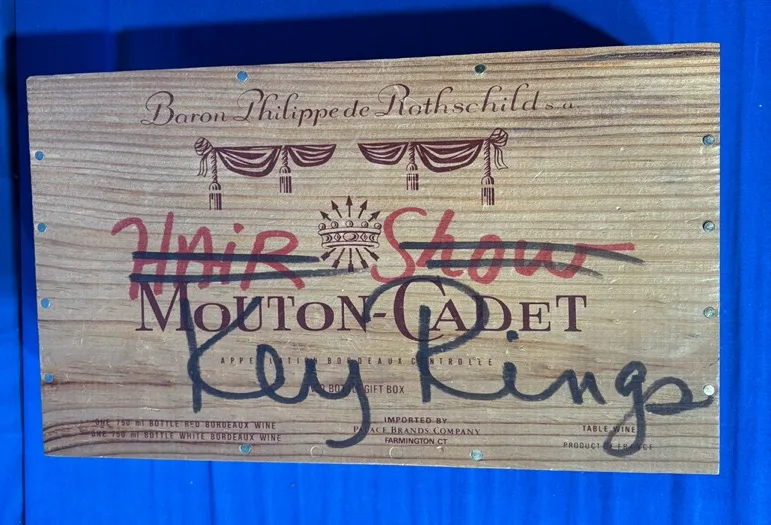 Baron Philippe de Rothschild s.a.
HAiR Show
MOUTON-CADET
APPELLATION BORDEAUX CONTROLEE
Key Rings
BOTTLE GIFT BOX
ONE 750 ml BOTTLE RED BORDEAUX WINE
ONE 750 ml BOTTLE WHITE BORDEAUX WINE
IMPORTED BY
PALACE BRANDS COMPANY
FARMINGTON, CT
TABLE WINE
PRODUCT OF FRANCE